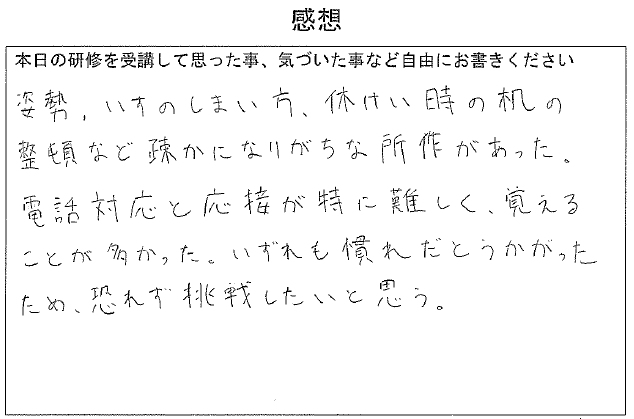 感想
本日の研修を受講して思った事、気づいた事など自由にお書きください
姿勢，いすのしまい方、休けい時の机の
整頓など疎かになりがちな所作があった。
電話対応と応接が特に難しく、覚える
ことが多かった。いずれも慣れだとうかがった
ため、恐れず挑戦したいと思う。